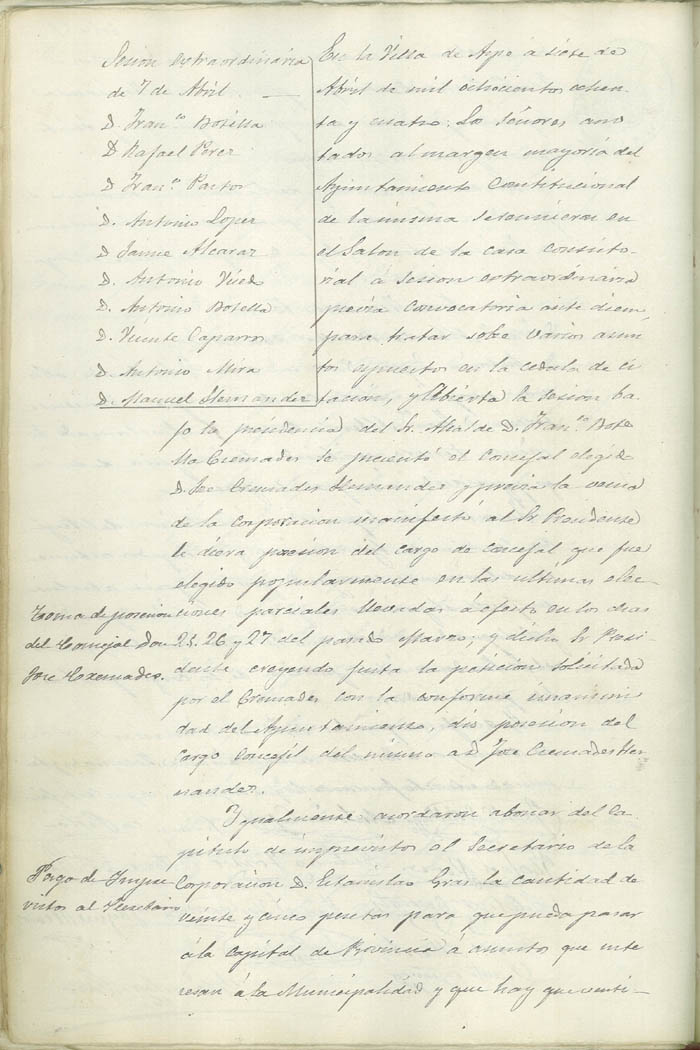 Sesion extraordinaria
de 7 de Abril
D. Fran.co Botella
D. Rafael Perez
D. Fran.co Pastor
D. Antonio Lopez
D. Jaime Alcaraz
D. Antonio
D. Antonio Botella
D. Vicente Caparros
D. Antonio Mira
D. Manuel Hernandez
En la Villa de Aspe á siete de
Abril de mil ochocientos ochen-
ta y cuatro: Los Señores ano-
tados al margen mayoría del
Ayuntamiento Constitucional
de la misma se reunieron en
el Salon de la casa consisto-
rial á sesion extraordinaria
previa convocatoria ante diem,
para tratar sobre varios asun-
tos espuestos en la cedula de ci-
tacion, y Abierta la sesion ba-
jo la presidencia del Sr. Alcalde D. Fran.co Bote
lla Cremades se presentó el Concejal elegido
D. Jose Cremades Hernandez y previa la venia
de la corporacion manifestó al Sr. Presidente
le diera posesion del cargo de concejal que fue
elegido popularmente en las ultimas elec-
ciones parciales llevadas á efecto en los dias
25. 26 y 27 del pasado Marzo; y dicho Sr. Presi-
dente creyendo justa la peticion solicitada
por el Cremades con la conforme unanimi
dad del Ayuntamiento, dió posesion del
cargo concejil del mismo a D. Jose Cremades Her
nandez.
Toma de posesion
del Concejal don
Jose Cremades.
Igualmente acordaron abonar del ca-
pitulo de imprevistos al Secretario de la
Corporacion D. Estanislao Gras la cantidad de
veinte y cinco pesetas para que pueda pasar
á la capital de Provincia á asuntos que inte
resan á la Municipalidad y que hay que venti-
Pago de Impre
vistos al Secretario